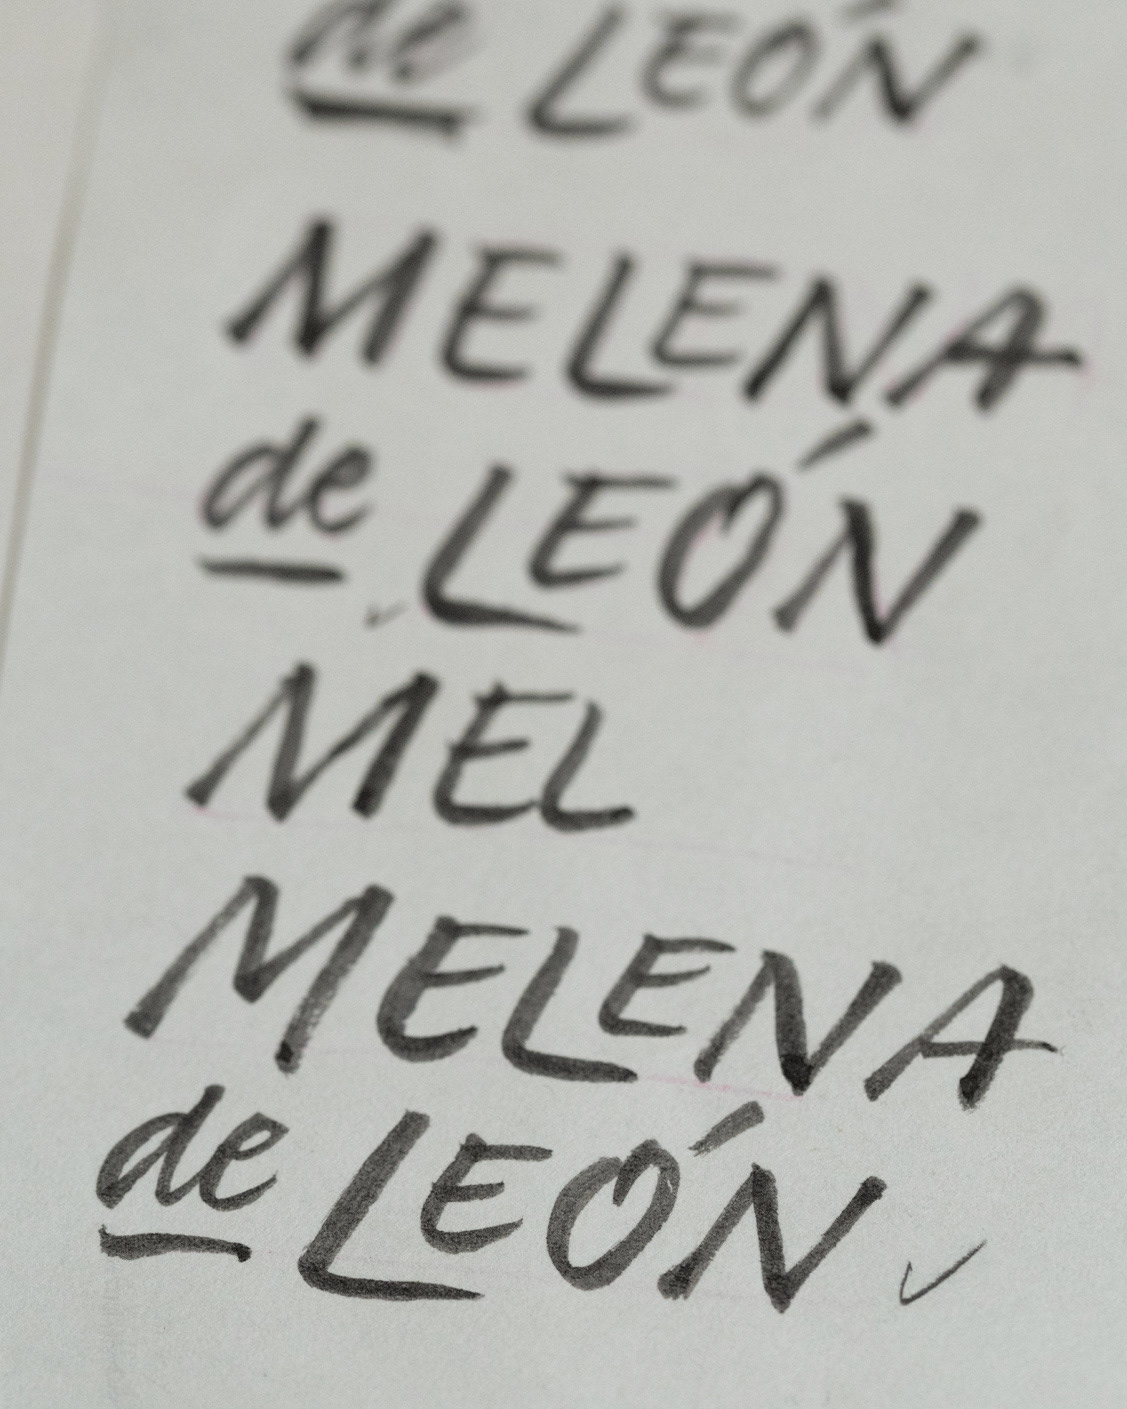 de LEÓN
MELENA
de LEÓN
MEL
MELENA
de LEÓN